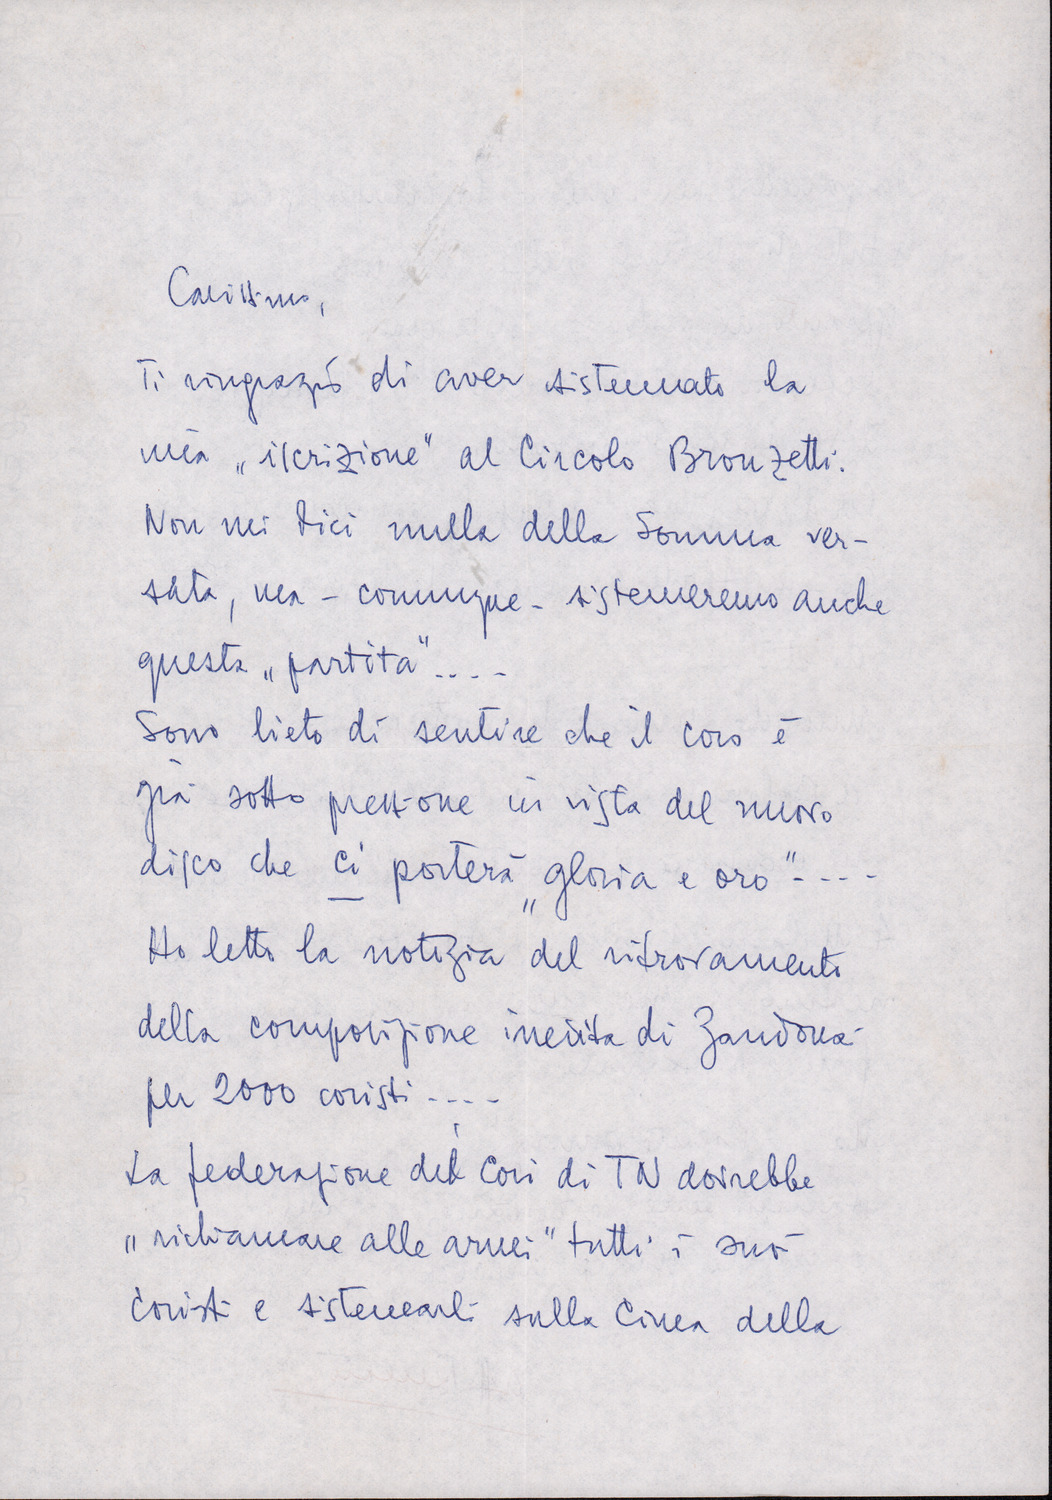 Carissimo,
Ti ringrazio di aver sistemato la
mia „iscrizione" al Circolo Bronzetti.
Non mi dici nulla della Somma ver-
sata, ma - comunque - sistemeremo anche
questa „partita"....
Sono lieto di sentire che il coro è
già sotto pressione in vista del nuovo
disco che ci porterà „gloria e oro"----
Ho letto la notizia del ritrovamento
della composizione inedita di Zandonai
per 2000 coristi----
La federazione dei Cori di TN dovrebbe
„richiamare alle armi" tutti i suoi
coristi e sistemarli sulla Cima della